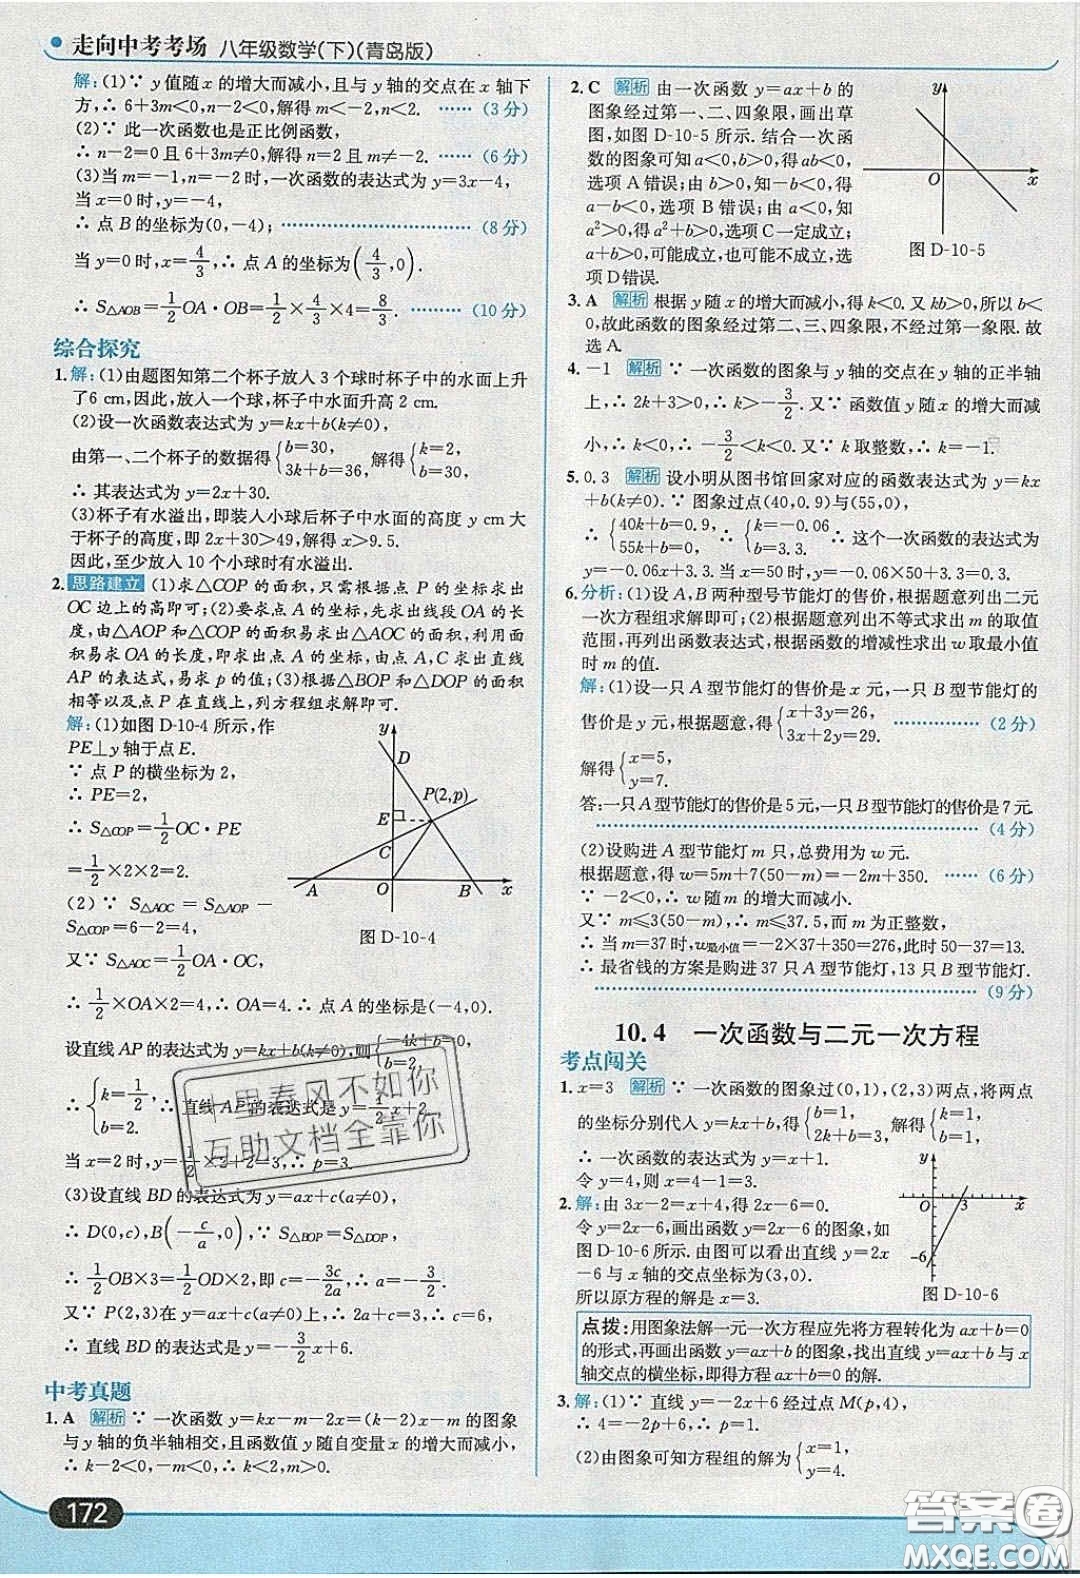 走向中考考场 八年级数学(下)(青岛版)
解:(1)∵ y值随x的增大而减小,且与y轴的交点在x轴下
方,∴ 6+3m<0,n-2<0,解得m<-2,n<2. ……(3分)
(2)∵ 此一次函数也是正比例函数,
∴ n-2=0且6+3m≠0,解得n=2且m≠-2. ……(6分)
(3)当m=-1,n=-2时,一次函数的表达式为y=3x-4,
当x=0时,y=-4,
∴ 点B的坐标为(0,-4); ……(8分)
当y=0时,x=4/3,∴ 点A的坐标为(4/3,0).
∴ S△AOB=1/2OA·OB=1/2×4/3×4=8/3. ………(10分)
综合探究
1.解:(1)由题图知第二个杯子放入3个球时杯子中的水面上升
了6 cm,因此,放入一个球,杯子中水面升高2 cm.
(2)设一次函数表达式为y=kx+b(k≠0),
由第一、二个杯子的数据得{b=30, 3k+b=36, 解得{k=2, b=30.
∴ 其表达式为y=2x+30.
(3)杯子有水溢出,即装入小球后杯子中水面的高度y cm大
于杯子的高度,即2x+30>49,解得x>9.5.
因此,至少放入10个小球时有水溢出.
2.思路建立 (1)求△COP的面积,只需根据点P的坐标求出
OC边上的高即可;(2)要求点A的坐标,先求出线段OA的长
度,由△AOP和△COP的面积易求出△AOC的面积,利用面
积易求OA的长度,即求出点A的坐标,由点A,C求出直线
AP的表达式,易求p的值;(3)根据△BOP和△DOP的面积
相等以及点P在直线上,列方程组求解即可.
解:(1)如图D-10-4所示,作
PE⊥y轴于点E.
∵ 点P的横坐标为2,
∴ PE=2,
∴ S△COP=1/2OC·PE
=1/2×2×2=2.
(2)∵ S△AOC=S△AOP-
S△COP=6-2=4,
又∵ S△AOC=1/2OA·OC,
y
D
P(2,p)
E
C
A O B x
图D-10-4
∴ 1/2×OA×2=4,∴ OA=4.∴ 点A的坐标是(-4,0).
设直线AP的表达式为y=kx+b(k≠0),则{-4k+b=0, b=2,
∴ {k=1/2, b=2. ∴ 直线AP的表达式是y=1/2x+2.
当x=2时,y=1/2×2+2=3,∴ p=3.
(3)设直线BD的表达式为y=ax+c(a≠0),
∴ D(0,c),B(-c/a,0),∵ S△BOP=S△DOP,
∴ 1/2OB×3=1/2OD×2,即c=-3c/2a,∴ a=-3/2.
又∵ P(2,3)在y=ax+c(a≠0)上,∴ 2a+c=3,∴ c=6,
∴ 直线BD的表达式是y=-3/2x+6.
中考真题
1.A 解析 ∵ 一次函数y=kx-m-2x=(k-2)x-m的图象
与y轴的负半轴相交,且函数值y随自变量x的增大而减小,
∴ k-2<0,-m<0,∴ k<2,m>0.故选A.
2.C 解析 由一次函数y=ax+b的
图象经过第一、二、四象限,画出草
图,如图D-10-5所示.结合一次函
数的图象可知a<0,b>0,得ab<0,
选项A错误;由b>0,知-b<0,得
a-b<0,选项B错误;由a<0,知
a²>0,得a²+b>0,选项C一定成立;
a+b>0,可能成立,也可能不成立,选
项D错误.
y
O x
图D-10-5
3.A 解析 根据y随x的增大而减小,得k<0.又kb>0,所以b<
0,故此函数的图象经过第二、三、四象限,不经过第一象限.故
选A.
4.-1 解析 ∵ 一次函数的图象与y轴的交点在y轴的正半轴
上,∴ 2k+3>0,∴ k>-3/2.又∵ 函数值y随x的增大而减
小,∴ k<0,∴ -3/2<k<0.又∵ k取整数,∴ k=-1.
5.0.3 解析 设小明从图书馆回家对应的函数表达式为y=kx
+b(k≠0).∵ 图象过点(40,0.9)与(55,0),
∴ {40k+b=0.9, 55k+b=0, ∴ {k=-0.06, b=3.3, ∴ 这个一次函数的表达式为
y=-0.06x+3.3.当x=50时,y=-0.06×50+3.3=0.3.
6.分析:(1)设A,B两种型号节能灯的售价,根据题意列出二元
一次方程组求解即可;(2)根据题意列出不等式求出m的取值
范围,再列出函数表达式,根据函数的增减性求出w取最小值
时m的值.
解:(1)设一只A型节能灯的售价是x元,一只B型节能灯的
售价是y元,根据题意,得{x+3y=26, 3x+2y=29. ……(2分)
解得{x=5, y=7.
答:一只A型节能灯的售价是5元,一只B型节能灯的售价是7元.
……(4分)
(2)设购进A型节能灯m只,总费用为w元.
根据题意,得w=5m+7(50-m)=-2m+350. ……(6分)
∵ -2<0,∴ w随m的增大而减小.
又∵ m≤3(50-m),∴ m≤37.5,而m为正整数,
∴ 当m=37时,w最小值=-2×37+350=276,此时50-37=13.
∴ 最省钱的方案是购进37只A型节能灯,13只B型节能灯.
……(9分)
10.4 一次函数与二元一次方程
考点闯关
1.x=3 解析 ∵ 一次函数的图象过(0,1),(2,3)两点,将两点
的坐标分别代入y=kx+b,得{b=1, 2k+b=3, 解得{k=1, b=1,
∴ 一次函数的表达式为y=x+1.
令y=4,则x=4-1=3.
2.解:由3x-2=x+4,得2x-6=0.
令y=2x-6,画出函数y=2x-6的图象,如
图D-10-6所示.由图可以看出直线y=2x
-6与x轴的交点坐标为(3,0).
所以原方程的解是x=3.
y
O 3 x
-6
图D-10-6
点拨:用图象法解一元一次方程应先将方程转化为ax+b=0
的形式,再画出函数y=ax+b的图象,找出直线y=ax+b与x
轴交点的横坐标,即得方程ax+b=0的解.
3.解:(1)∵ 直线y=-2x+6经过点M(p,4),
∴ 4=-2p+6,∴ p=1.
(2)由图象可知方程组的解为{x=1, y=4.
十里春风不如你
互助文档全靠你
172
答案圈
MXQE.COM